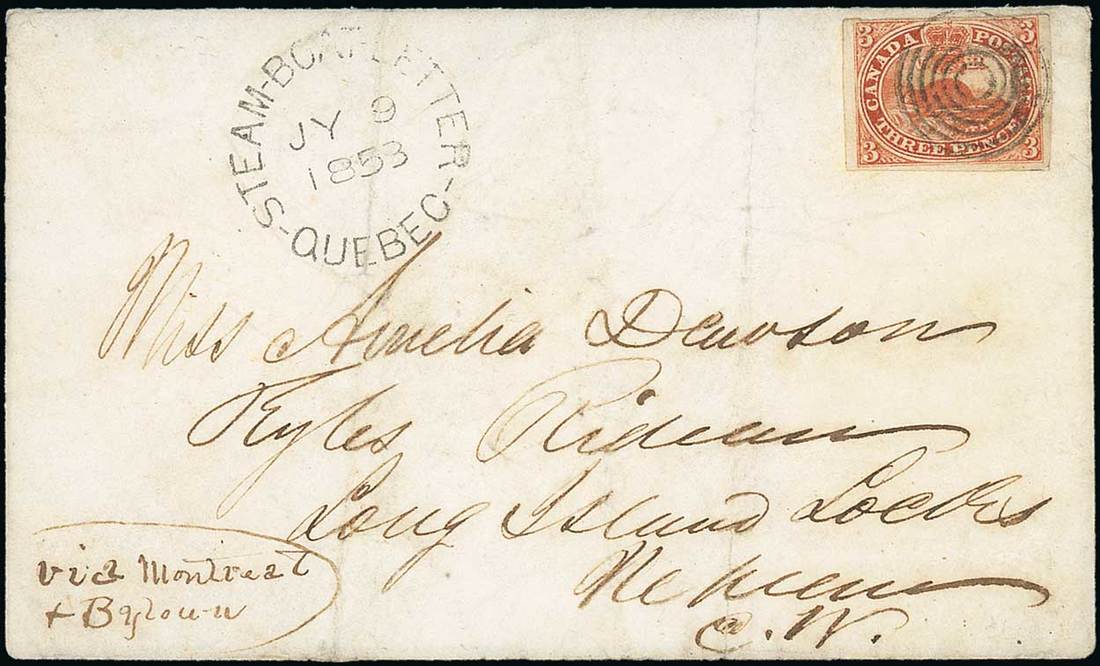 STEAM-BOAT-LETTER
JY 9
1853
-QUEBEC-
3 3
CANADA POSTAGE
THREE PENCE
3 3
Miss Amelia Dawson
Kyles Rideau
Long Island Locks
Nepean
C.W.
via Montreal
+ Bytown